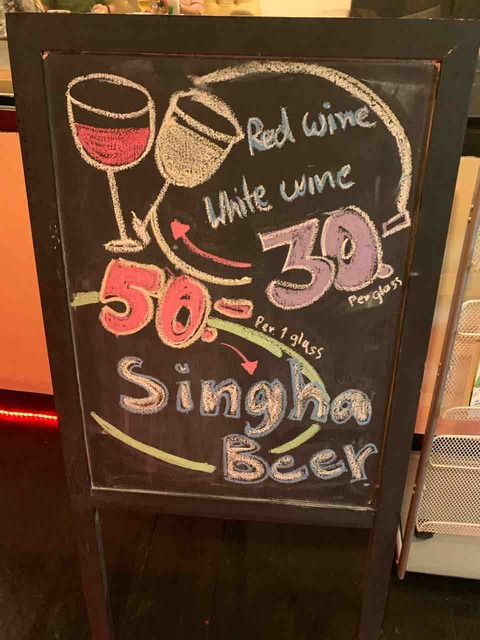 Red wine
White wine
30.-
Per glass
50.-
Per 1 glass
Singha
Beer